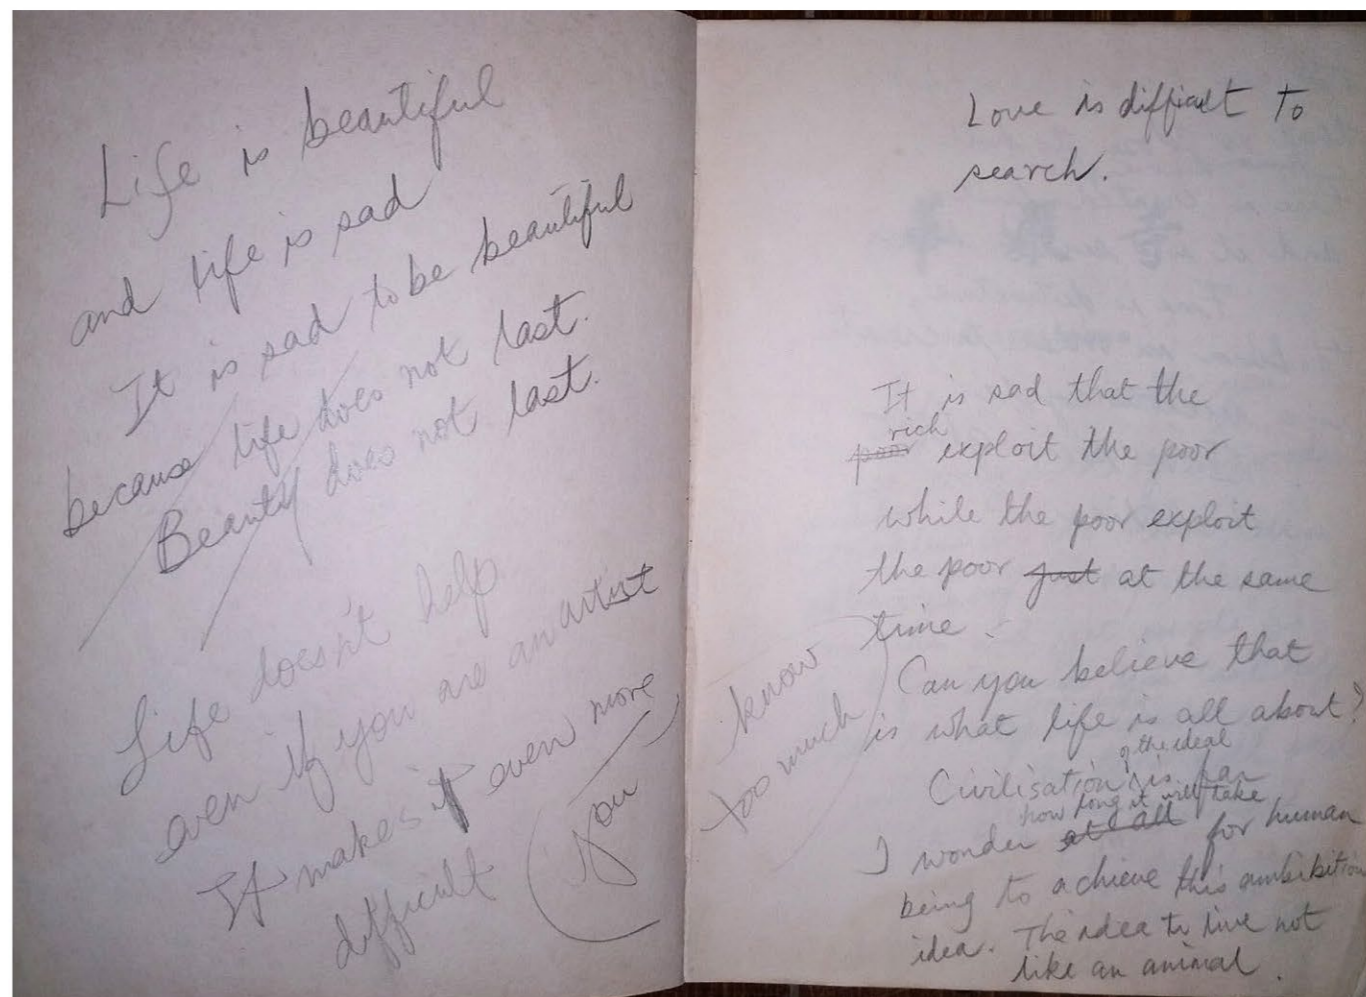 Life is beautiful
and life is sad
It is sad to be beautiful
because life does not last.
Beauty does not last.
Life doesn't help
even if you are an artist
It makes it even more
difficult
(you
know
too much)
Love is difficult to
search.
It is sad that the
rich
poor exploit the poor
while the poor exploit
the poor just at the same
time.
Can you believe that
is what life is all about?
of the ideal
Civilisation is far
how long it will take
I wonder at all for human
being to achieve this ambibition
idea. The idea to live not
like an animal.